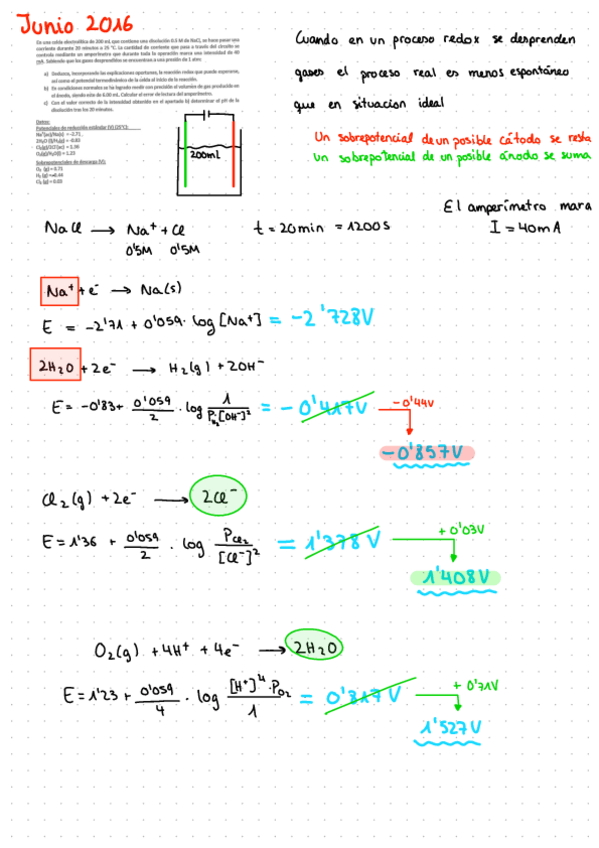 Junio 2016
En una celda electrolítica de 200 mL que contiene una disolución 0.5 M de NaCl, se hace pasar una
corriente durante 20 minutos a 25 °C. La cantidad de corriente que pasa a través del circuito se
controla mediante un amperímetro que durante toda la operación marca una intensidad de 40
mA. Sabiendo que los gases desprendidos se encuentran a una presión de 1 atm:
a) Deduzca, incorporando las explicaciones oportunas, la reacción redox que puede esperarse,
así como el potencial termodinámico de la celda al inicio de la reacción.
b) En condiciones normales se ha logrado medir con precisión el volumen de gas producido en
el ánodo, siendo éste de 6.00 mL. Calcular el error de lectura del amperímetro.
c) Con el valor correcto de la intensidad obtenido en el apartado b) determinar el pH de la
disolución tras los 20 minutos.
Datos:
Potenciales de reducción estándar (V) (25°C):
Na⁺(ac)/Na(s) = -2.71
2H₂O (l)/H₂(g) = -0.83
Cl₂(g)/2Cl⁻(ac) = 1.36
O₂(g)/H₂O(l) = 1.23
Sobrepotenciales de descarga (V):
O₂ (g) = 0.71
H₂ (g) = -0.44
Cl₂ (g) = 0.03
200mL
Cuando en un proceso redox se desprenden
gases el proceso real es menos espontáneo
que en situacion ideal
Un sobrepotencial de un posible cátodo se resta
Un sobrepotencial de un posible ánodo se suma
El amperímetro mara
NaCl → Na⁺ + Cl t = 20min = 1200s I = 40mA
0'5M 0'5M
Na⁺ + e⁻ → Na(s)
E = -2'71 + 0'059 · log [Na⁺] = -2'728V
2H₂O + 2e⁻ → H₂(g) + 2OH⁻
E = -0'83 + 0'059/2 · log 1/P_H₂[OH⁻]² = -0'417V -0'44V
-0'857V
Cl₂(g) + 2e⁻ → 2Cl⁻
E = 1'36 + 0'059/2 · log P_Cl₂/[Cl⁻]² = 1'378V +0'03V
1'408V
O₂(g) + 4H⁺ + 4e⁻ → 2H₂O
E = 1'23 + 0'059/4 · log [H⁺]⁴·P_O₂/1 = 0'817V +0'71V
1'527V